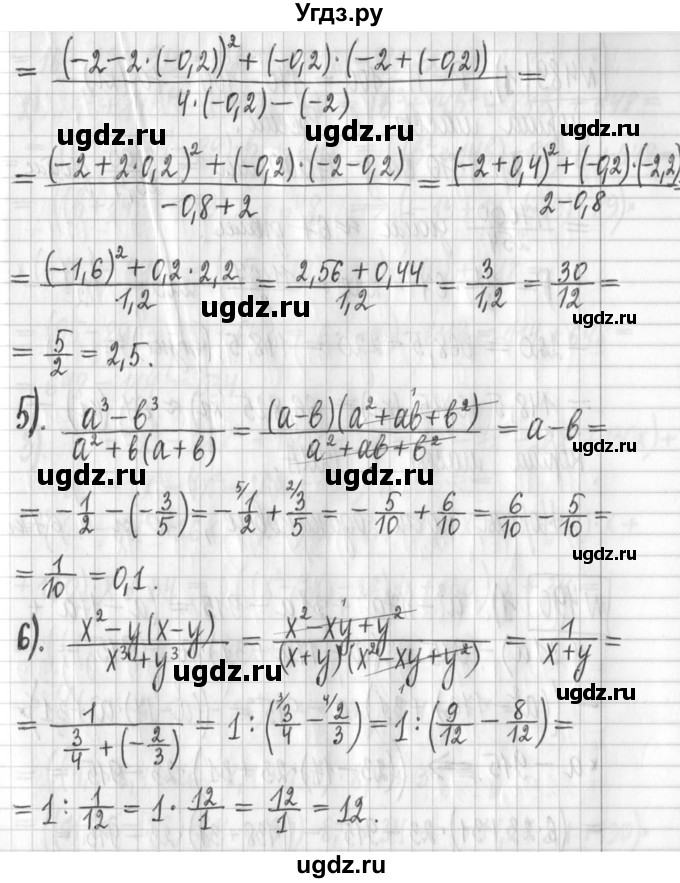 Угдз.ру
= ((-2-2·(-0,2))² + (-0,2)·(-2+(-0,2))) / (4·(-0,2)-(-2)) =
ugdz.ru ugdz.ru
= ((-2+2·0,2)² + (-0,2)·(-2-0,2)) / (-0,8+2) = ((-2+0,4)² + (-0,2)·(-2,2)) / (2-0,8) =
ugdz.ru
= ((-1,6)² + 0,2·2,2) / 1,2 = (2,56+0,44) / 1,2 = 3/1,2 = 30/12 =
ugdz.ru ugdz.ru
= 5/2 = 2,5.
ugdz.ru
5). (a³-в³) / (a²+в(a+в)) = ((a-в)(a²+aв+в²)) / (a²+aв+в²) = a-в =
ugdz.ru ugdz.ru
= -1/2 - (-3/5) = - ⁵/1/2 + ²/3/5 = -5/10 + 6/10 = 6/10 - 5/10 =
ugdz.ru
= 1/10 = 0,1.
ugdz.ru
6). (x²-y(x-y)) / (x³+y³) = (x²-xy+y²) / ((x+y)(x²-xy+y²)) = 1/(x+y) =
ugdz.ru ugdz.ru
= 1 / (3/4+(-2/3)) = 1 : (³/3/4 - ⁴/2/3) = 1 : (9/12 - 8/12) =
ugdz.ru
= 1 : 1/12 = 1 · 12/1 = 12/1 = 12.
ugdz.ru
ugdz.ru